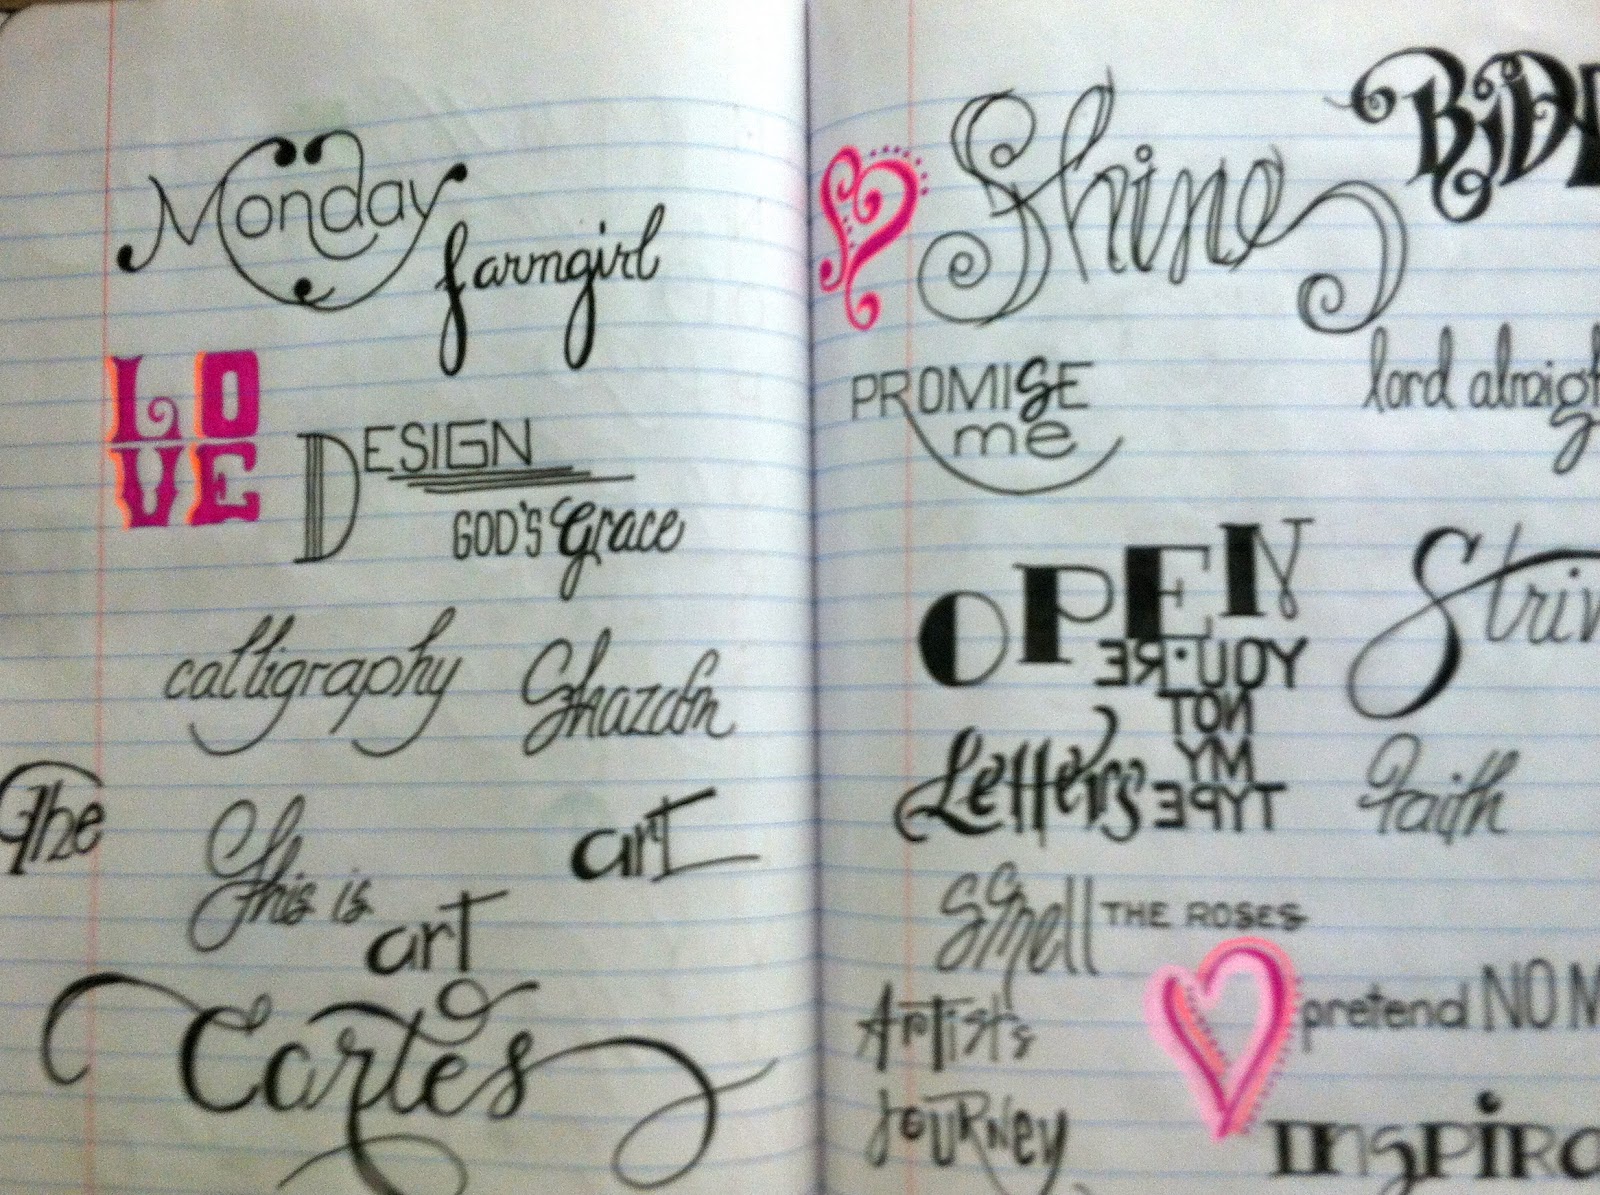 Monday
farmgirl
LO
VE
DESIGN
GOD'S Grace
calligraphy
The
This is
art
art
Cartes
Shine
PROMISE
me
lord almigh
OPEN
YOU'RE
NOT
MY
TYPE
Letters
Striv
Faith
Smell THE ROSES
Artists
Journey
pretend NO M
INSPIRA